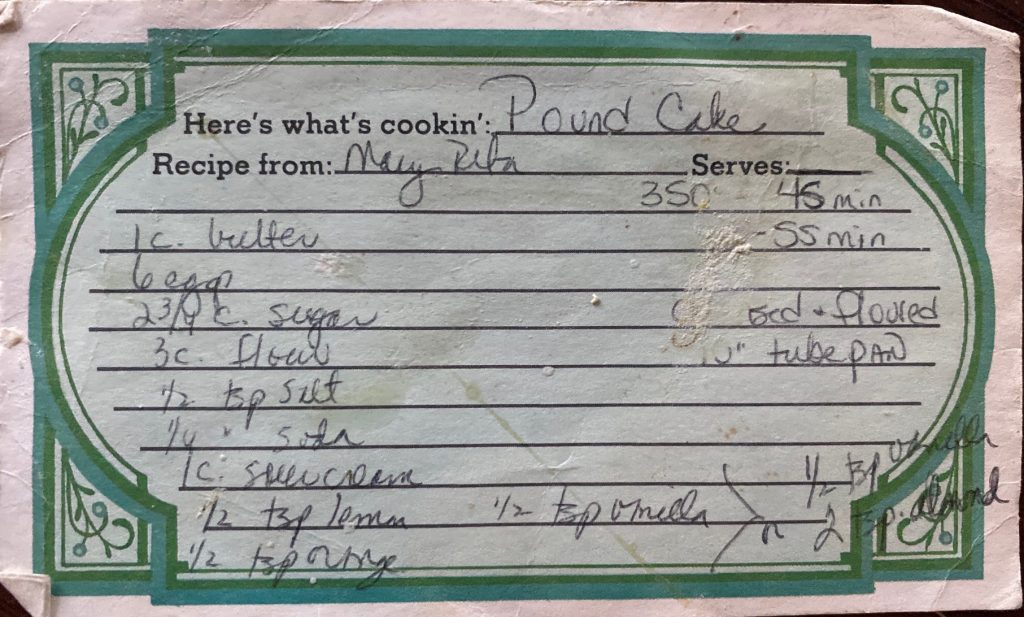 Here's what's cookin': Pound Cake
Recipe from: Mary Rita Serves:
350 - 45 min
1 c. butter - 55 min
6 eggs
2 3/4 c. sugar & floured
3 c. flour " tube pan
1/2 tsp salt
1/4 " soda
1 c. sour cream 1/2 tsp vanilla
1/2 tsp lemon 1/2 tsp vanilla > or 2 tsp. almond
1/2 tsp orange